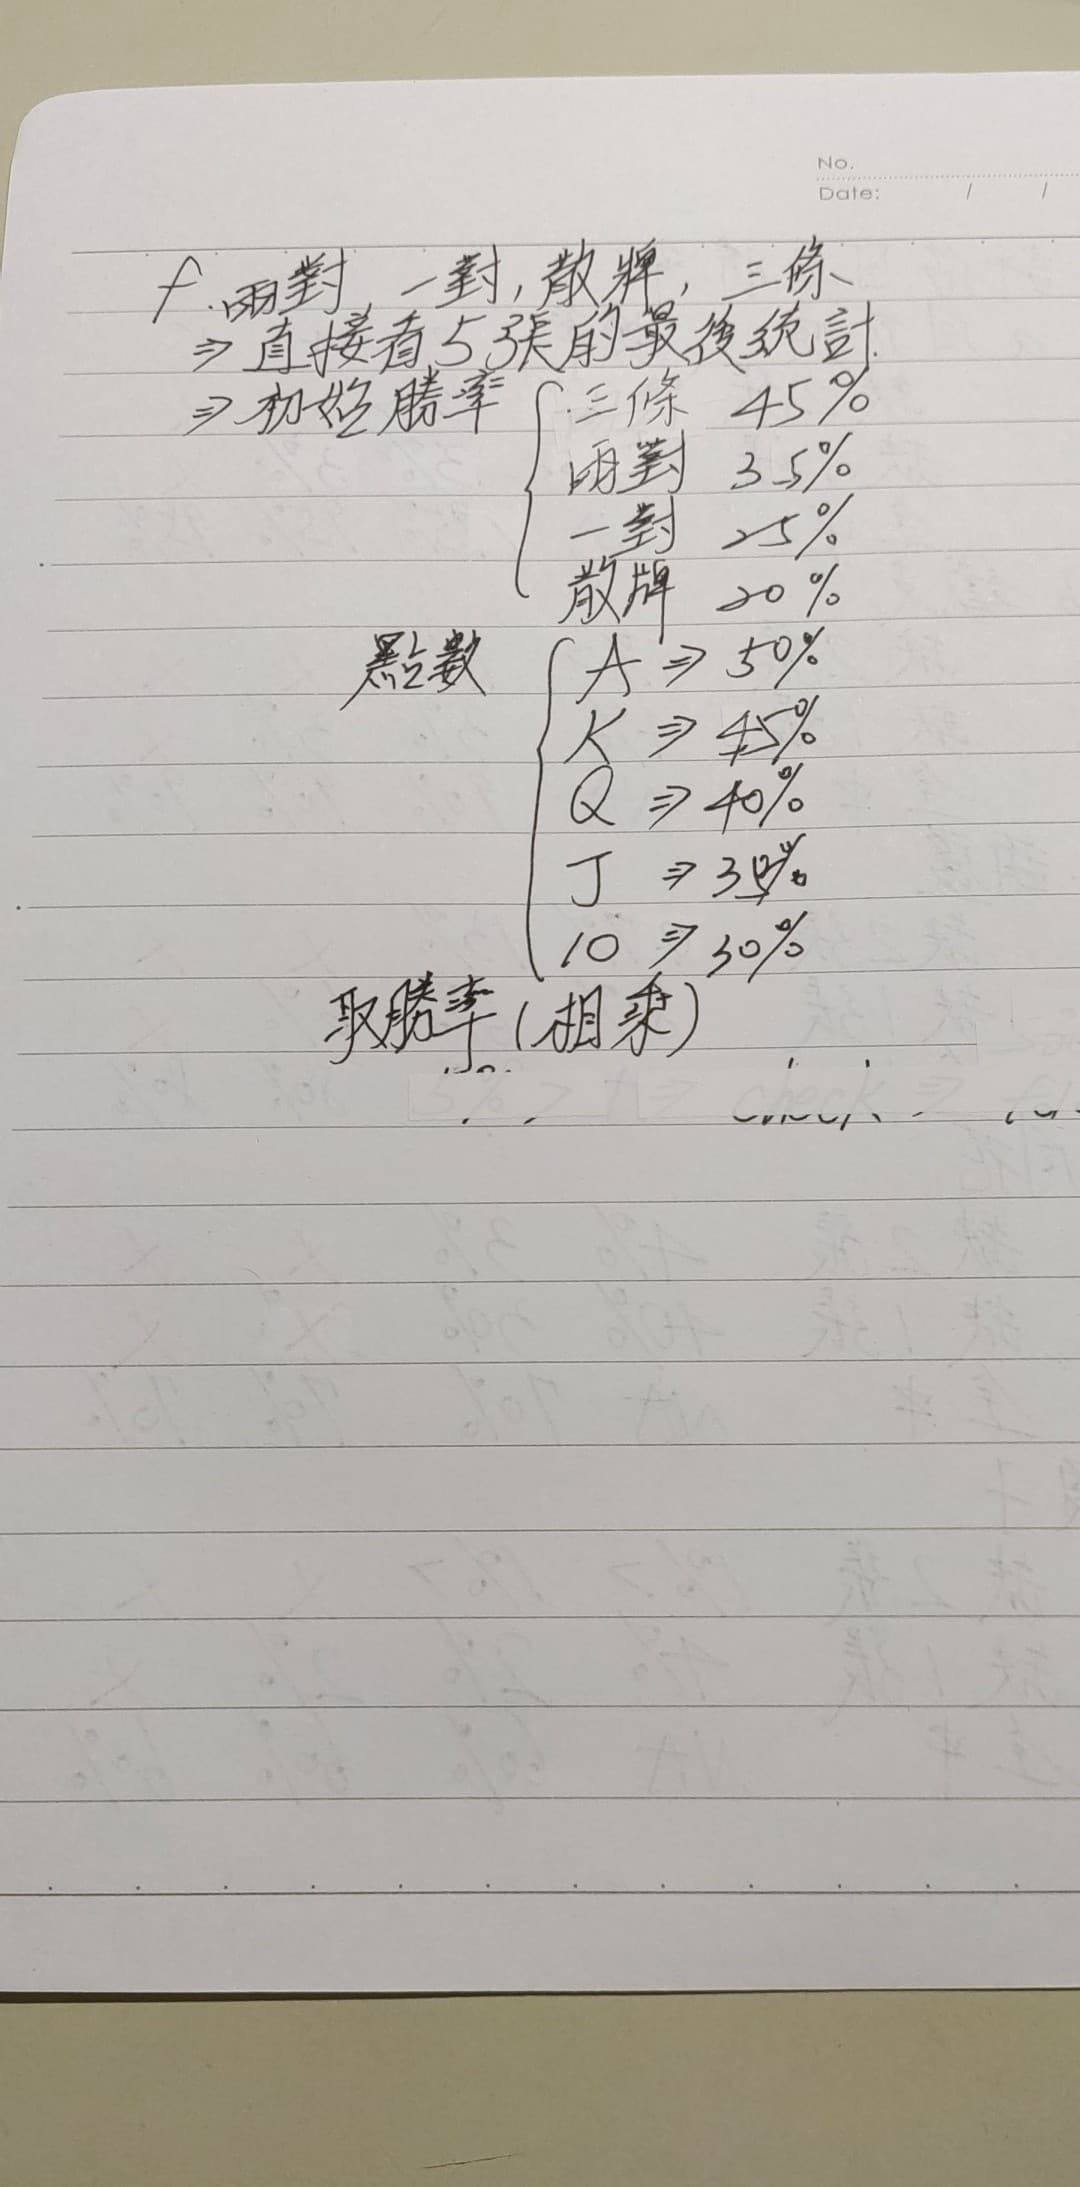 No.
Date: / /
f.兩對,一對,散牌,三條
⇒直接看5張的最後統計.
⇒初始勝率 三條 45%
兩對 35%
一對 25%
散牌 20%
點數 A ⇒ 50%
K ⇒ 45%
Q ⇒ 40%
J ⇒ 35%
10 ⇒ 30%
取勝率(相乘)
check